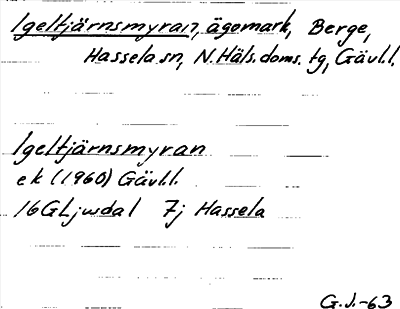 Igeltjärnsmyran, ägomark, Berge,
Hassela sn, N. Häls. doms. tg, Gävl.l.
Igeltjärnsmyran
ek (1960) Gävl.l.
16G Ljusdal 7j Hassela
G.J.-63